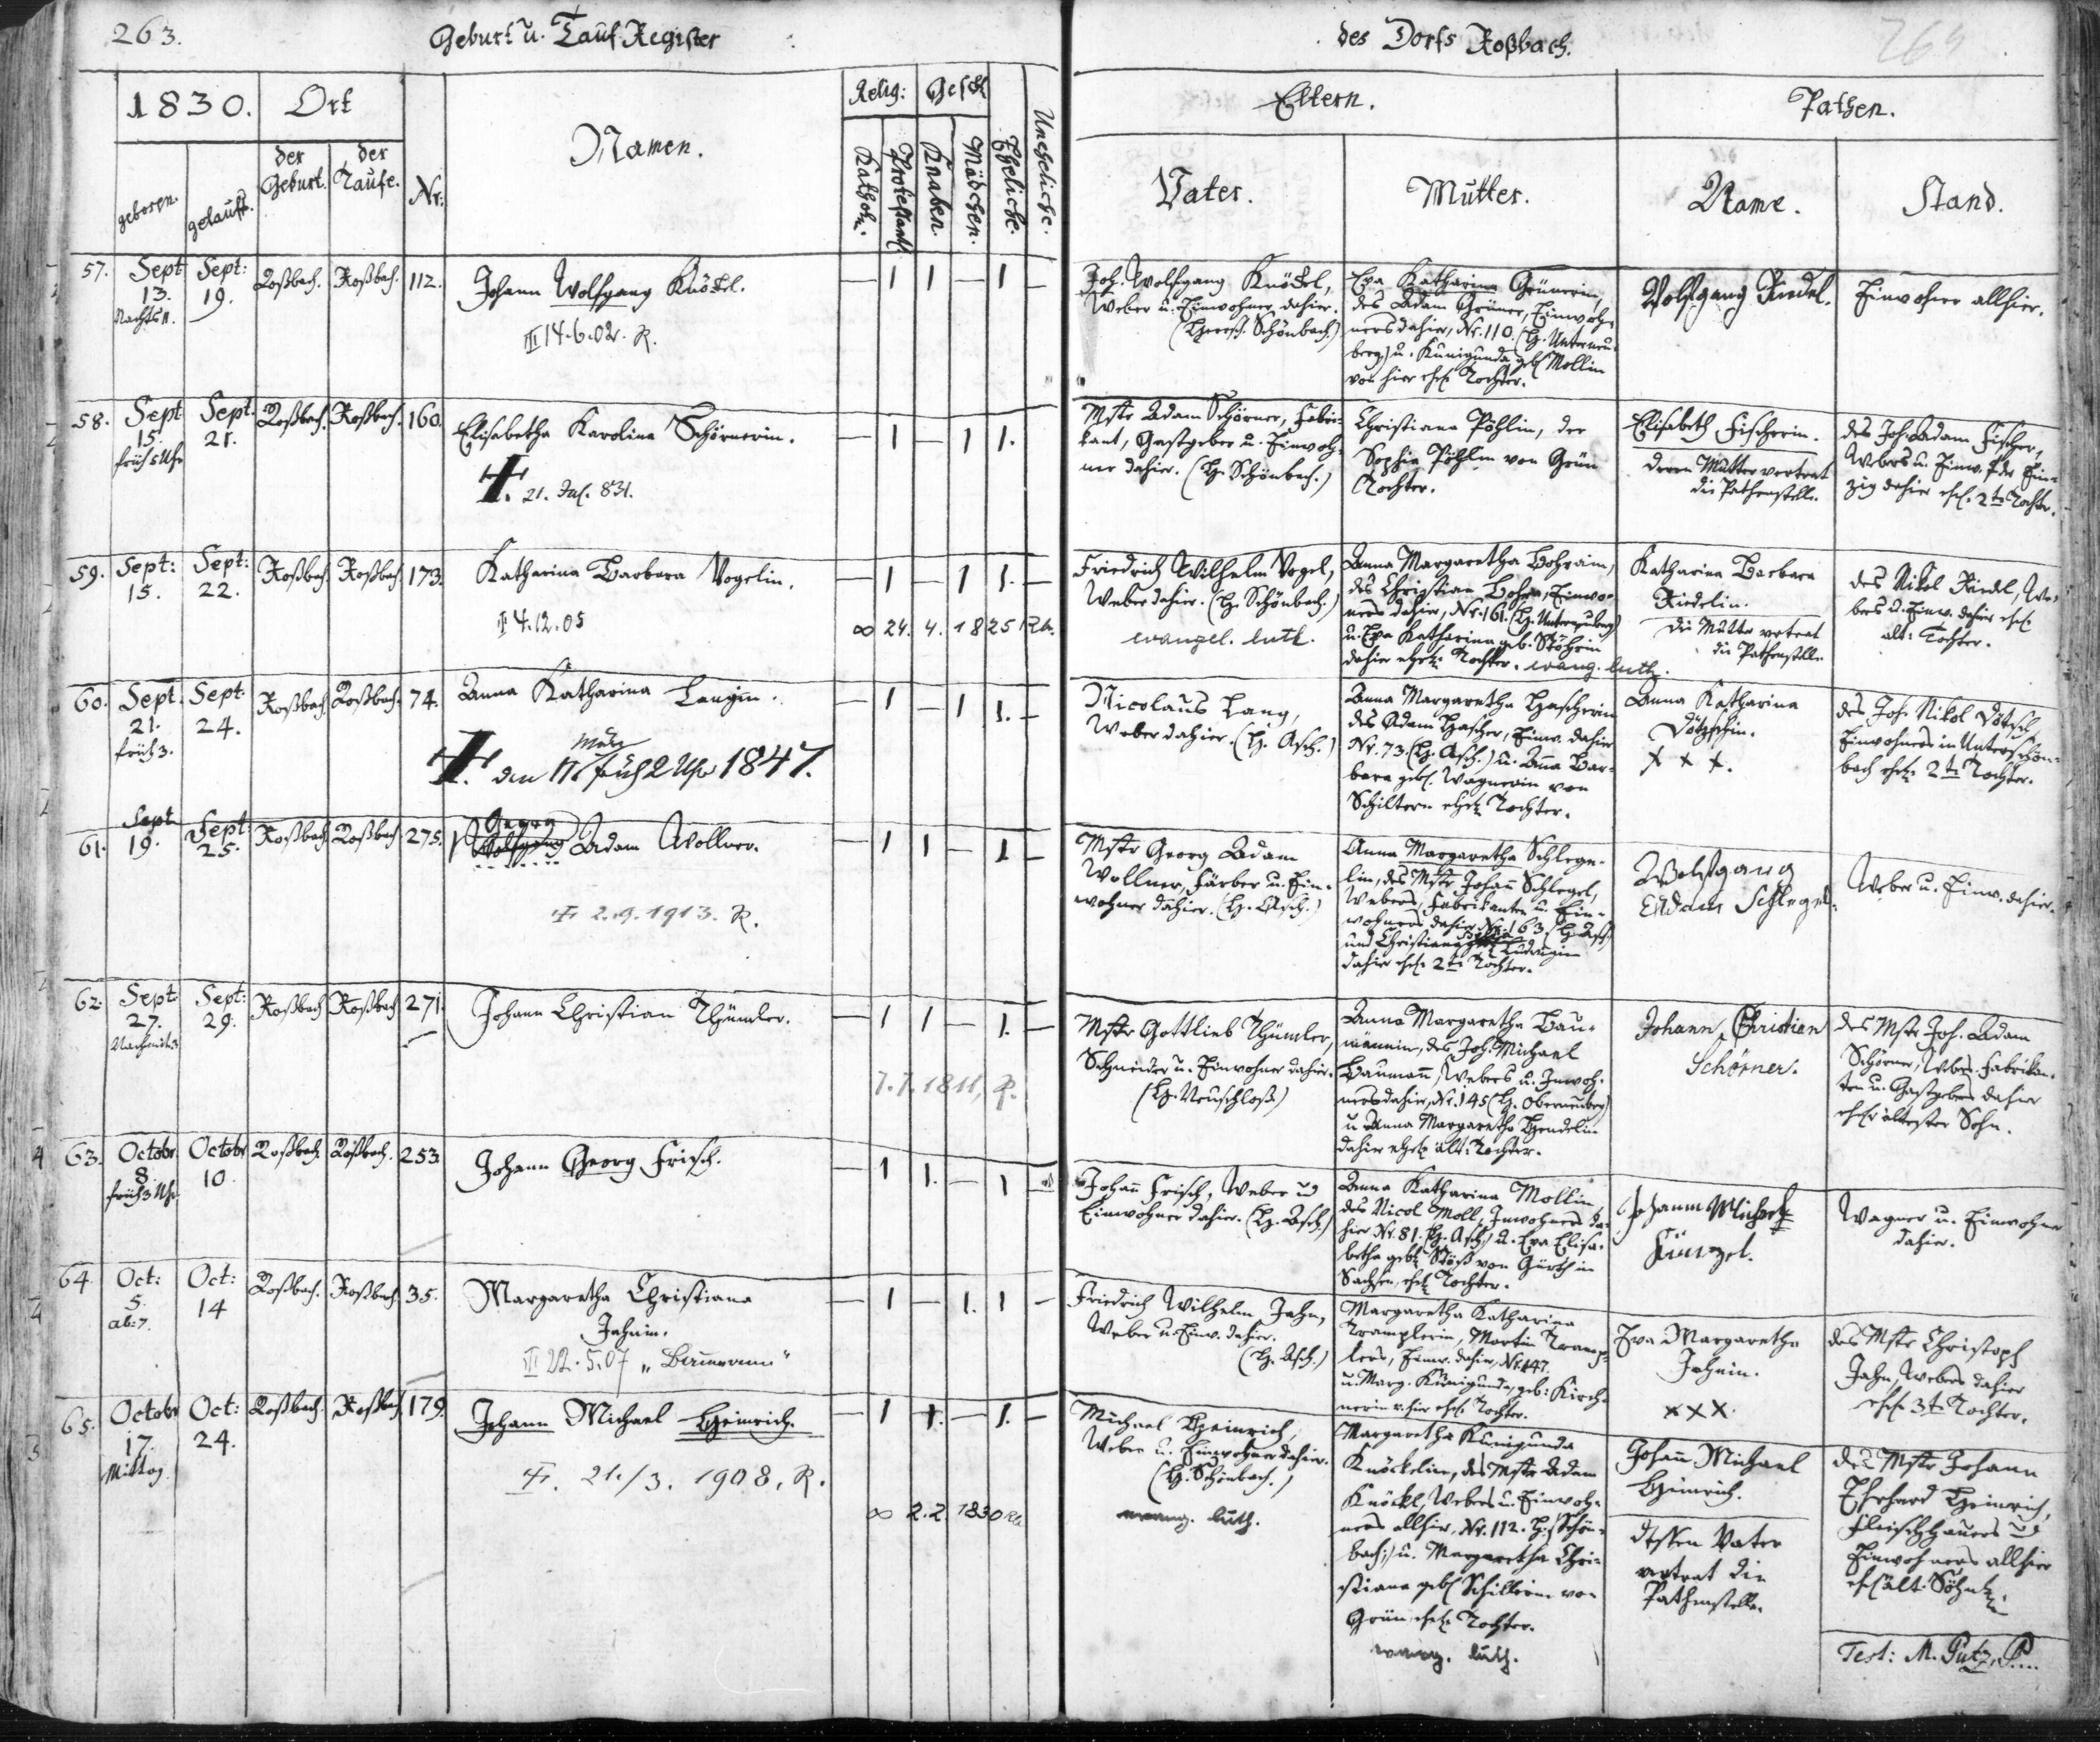 263.
Geburt u. Tauf-Register
des Dorfs Roßbach.
264
1830.
Ort
geboren.
getauft.
der Geburt.
der Taufe.
Nr:
Namen.
Relig:
Gesch
Kathol:
Protestant.
Knaben.
Mädchen.
Eheliche.
Uneheliche.
Eltern.
Vater.
Mutter.
Pathen.
Name.
Stand.
57. Sept 13. Nachts 11. Sept: 19. Roßbach. Roßbach. 112.
Johann Wolfgang Knöckel.
14.6.02. R.
— 1 1 — 1 —
Joh. Wolfgang Knöckel,
Weber u. Einwohner dahier.
(Herrsch. Schönbach.)
Eva Katharina Grünerin,
des Adam Grüner, Einwoh-
ners dahier, Nr. 110 (H. Unterneu-
berg) u. Kunigunda geb. Mollin
von hier ehel. Tochter.
Wolfgang Riedel.
Einwohner allhier.
58. Sept 15. früh 5 Uhr Sept. 21. Roßbach. Roßbach. 160.
Elisabetha Karolina Schörnerin.
21. Jul. 831.
— 1 — 1 1. —
Mstr Adam Schörner, Fabri-
kant, Gastgeber u. Einwoh-
ner dahier. (H. Schönbach.)
Christiana Pöhlin, der
Sophia Pöhlin von Grün
Tochter.
Elisabeth Fischerin.
deren Mutter vertrat
die Pathenstelle.
des Joh. Adam Fischer,
Webers u. Einw.
dahier ehel. 2te Tochter.
59. Sept: 15. Sept: 22. Roßbach. Roßbach. 173.
Katharina Barbara Vogelin.
4.12.05
— 1 — 1 1. —
∞ 24. 4. 1825
Friedrich Wilhelm Vogel,
Weber dahier. (H. Schönbach.)
evangel. luth.
Anna Margaretha
des Christian
ners dahier, Nr. 161. (H. Unterneuberg)
u. Eva Katharina geb. Stöhrin
dahier ehel. Tochter. evang. luth.
Katharina Barbara
Riedelin.
Die Mutter vertrat
die Pathenstelle
des Nikol Riedel, We-
bers u. Einw. dahier ehel.
ält: Tochter.
60. Sept. 21. früh 3. Sept. 24. Roßbach. Roßbach. 74.
Anna Katharina Langin.
den 17. März früh 2 Uhr 1847.
— 1 — 1 1. —
Nicolaus Lang,
Weber dahier. (H. Asch.)
Anna Margaretha Hascherin
des Adam Hascher, Einw. dahier
Nr. 73. (H. Asch.) u. Anna Bar-
bara geb. Wagnerin von
Schiltern ehel. Tochter.
Anna Katharina
Dötzschin.
x x x.
des Joh. Nikol Dötsch
Einwohners in Unterschön-
bach ehel. 2te Tochter.
61. Sept 19. Sept: 25. Roßbach. Roßbach 275.
Georg
Wolfgang Adam Wollner.
2.9.1913. R.
— 1 1 — 1 —
Mstr Georg Adam
Wollner, Färber u. Ein-
wohner dahier. (H. Asch.)
Anna Margaretha Schlege-
lin, des Mstr Johañ Schlegel,
Webers, Fabrikanten u. Ein-
wohners dahier Nr. 163. (H. Asch)
und Christiana
dahier ehel. 2te Tochter.
Wolfgang
Erdam Schlegel.
Weber u. Einw. dahier.
62. Sept: 27. Nachmit: 3 Sept: 29. Roßbach Roßbach 271.
Johann Christian Thümler.
— 1 1 — 1. —
7.7.1811, R.
Mstr Gottlieb Thümler,
Schneider u. Einwohner dahier.
(H. Neuschloß)
Anna Margaretha Bau-
mannin, des Joh. Michael
Baumañ, Webers u. Inwoh-
ners dahier, Nr. 145 (H. Oberneuberg)
u. Anna Margaretha Hendelin
dahier ehel. ält: Tochter.
Johann Christian
Schörner.
des Mstr Joh. Adam
Schörner, Weber, Fabrikan-
ten u. Gastgebers dahier
ehel. ältester Sohn.
63. Octobr 8. früh 3 Uhr Octobr 10. Roßbach Roßbach. 253
Johann Georg Frisch.
— 1 1. — 1 —
Johañ Frisch, Weber ud
Einwohner dahier. (H. Asch.)
Anna Katharina Mollin
des Nicol Moll, Inwohners da-
hier Nr. 81. (H. Asch) u. Eva Elisa-
betha geb. Stöß von Gürth in
Sachsen, ehel. Tochter.
Johann Michael
Künzel.
Wagner u. Einwohner
dahier.
64. Oct: 5. ab: 7. Oct: 14 Roßbach. Roßbach. 35.
Margaretha Christiana
Jahnin.
22.5.07 „Baumann"
— 1 — 1. 1 —
Friedrich Wilhelm Jahn,
Weber u. Einw. dahier.
(H. Asch.)
Margaretha Katharina
Tramplerin, Martin Tramp-
lers, Einw. dahier, Nr. 147.
u. Marg. Kunigunda, geb: Kirch-
nerin v. hier ehel. Tochter.
Eva Margaretha
Jahnin.
xxx.
des Mstr Christoph
Jahn, Webers dahier
ehel. 3te Tochter.
65. Octobr 17. Mittag. Oct: 24. Roßbach. Roßbach, 179.
Johann Michael Heinrich.
21./3. 1908, R.
— 1 1. — 1. —
∞ 2.2. 1830
Michael Heinrich,
Weber u. Einwohner dahier.
(H. Schönbach.)
evang. luth.
Margaretha Kunigunda
Knöckelin, des Mstr Adam
Knöckl, Webers u. Einwoh-
ners allhier, Nr. 112. H. (Schön-
bach,) u. Margaretha Chri-
stiana geb. Schillerin von
Grün, ehel. Tochter.
evang. luth.
Johañ Michael
Heinrich.
dessen Vater
vertrat die
Pathenstelle.
des Mstr Johann
Erhard Heinrich,
Fleischhauers ud
Einwohners allhier
ehel. ält: Sohn.
Test: M. Putz, P....